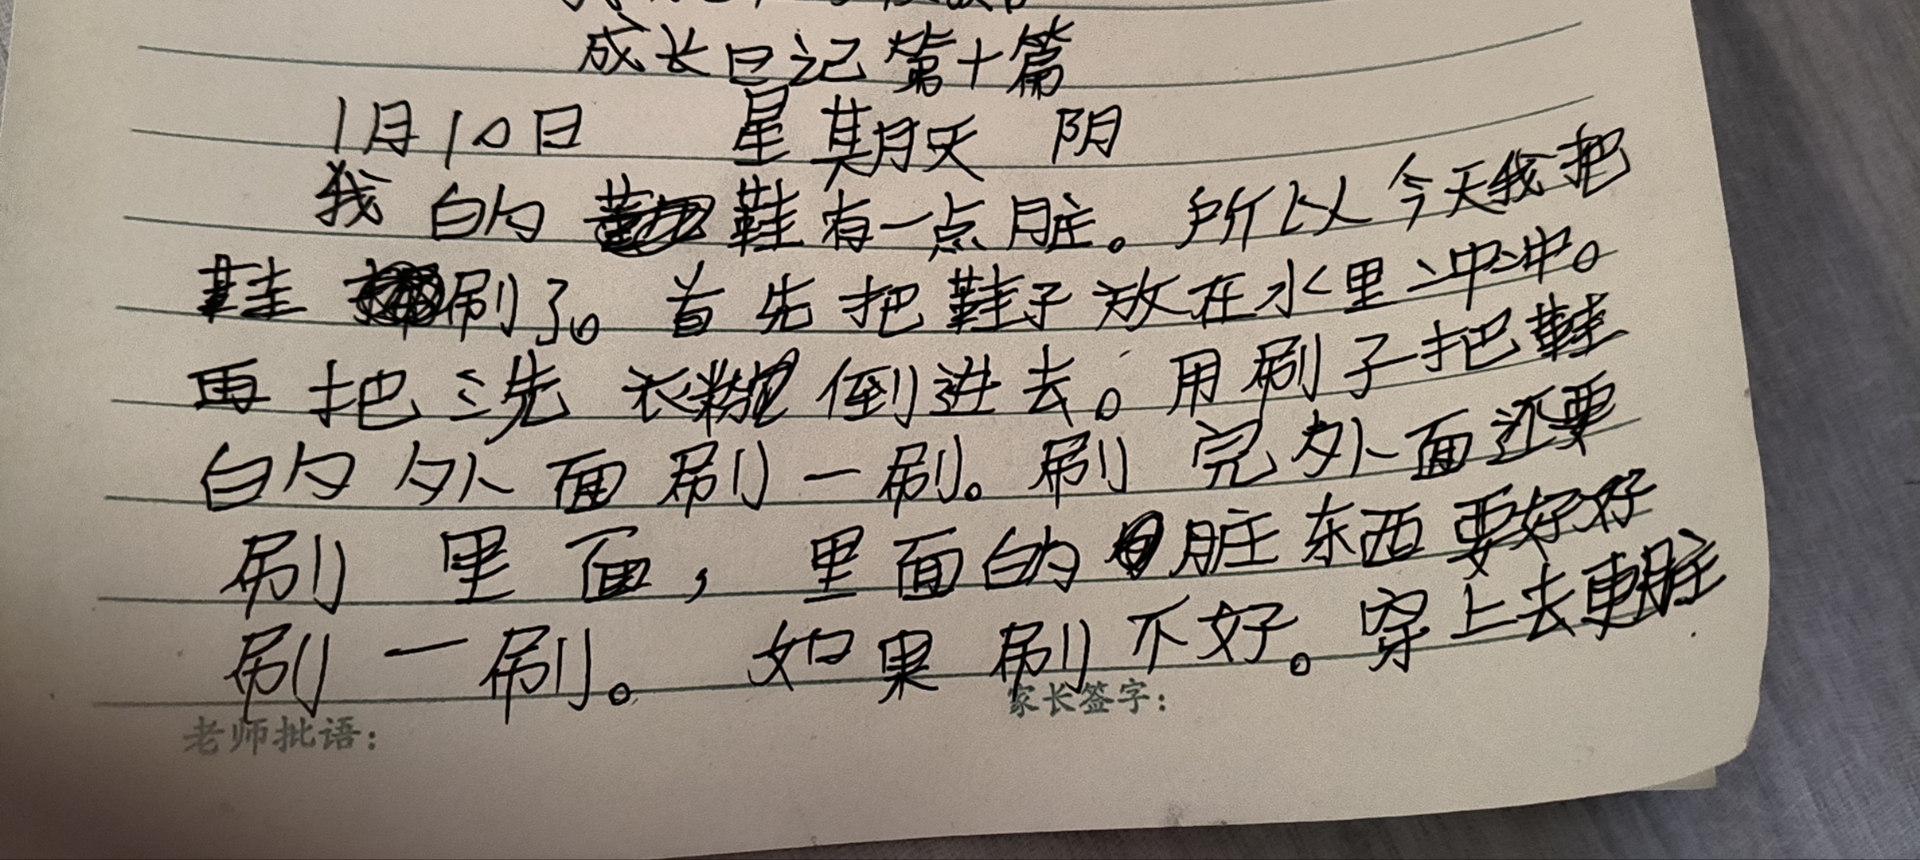 成长日记第十篇
1月10日 星期天 阴
我的鞋有一点脏。所以今天我把
鞋刷了。首先把鞋子放在水里冲冲。
再把洗衣糊倒进去。用刷子把鞋
的外面刷一刷。刷完外面还要
刷里面，里面的脏东西要好好
刷一刷。如果刷不好。穿上去更脏.
家长签字：
老师批语：